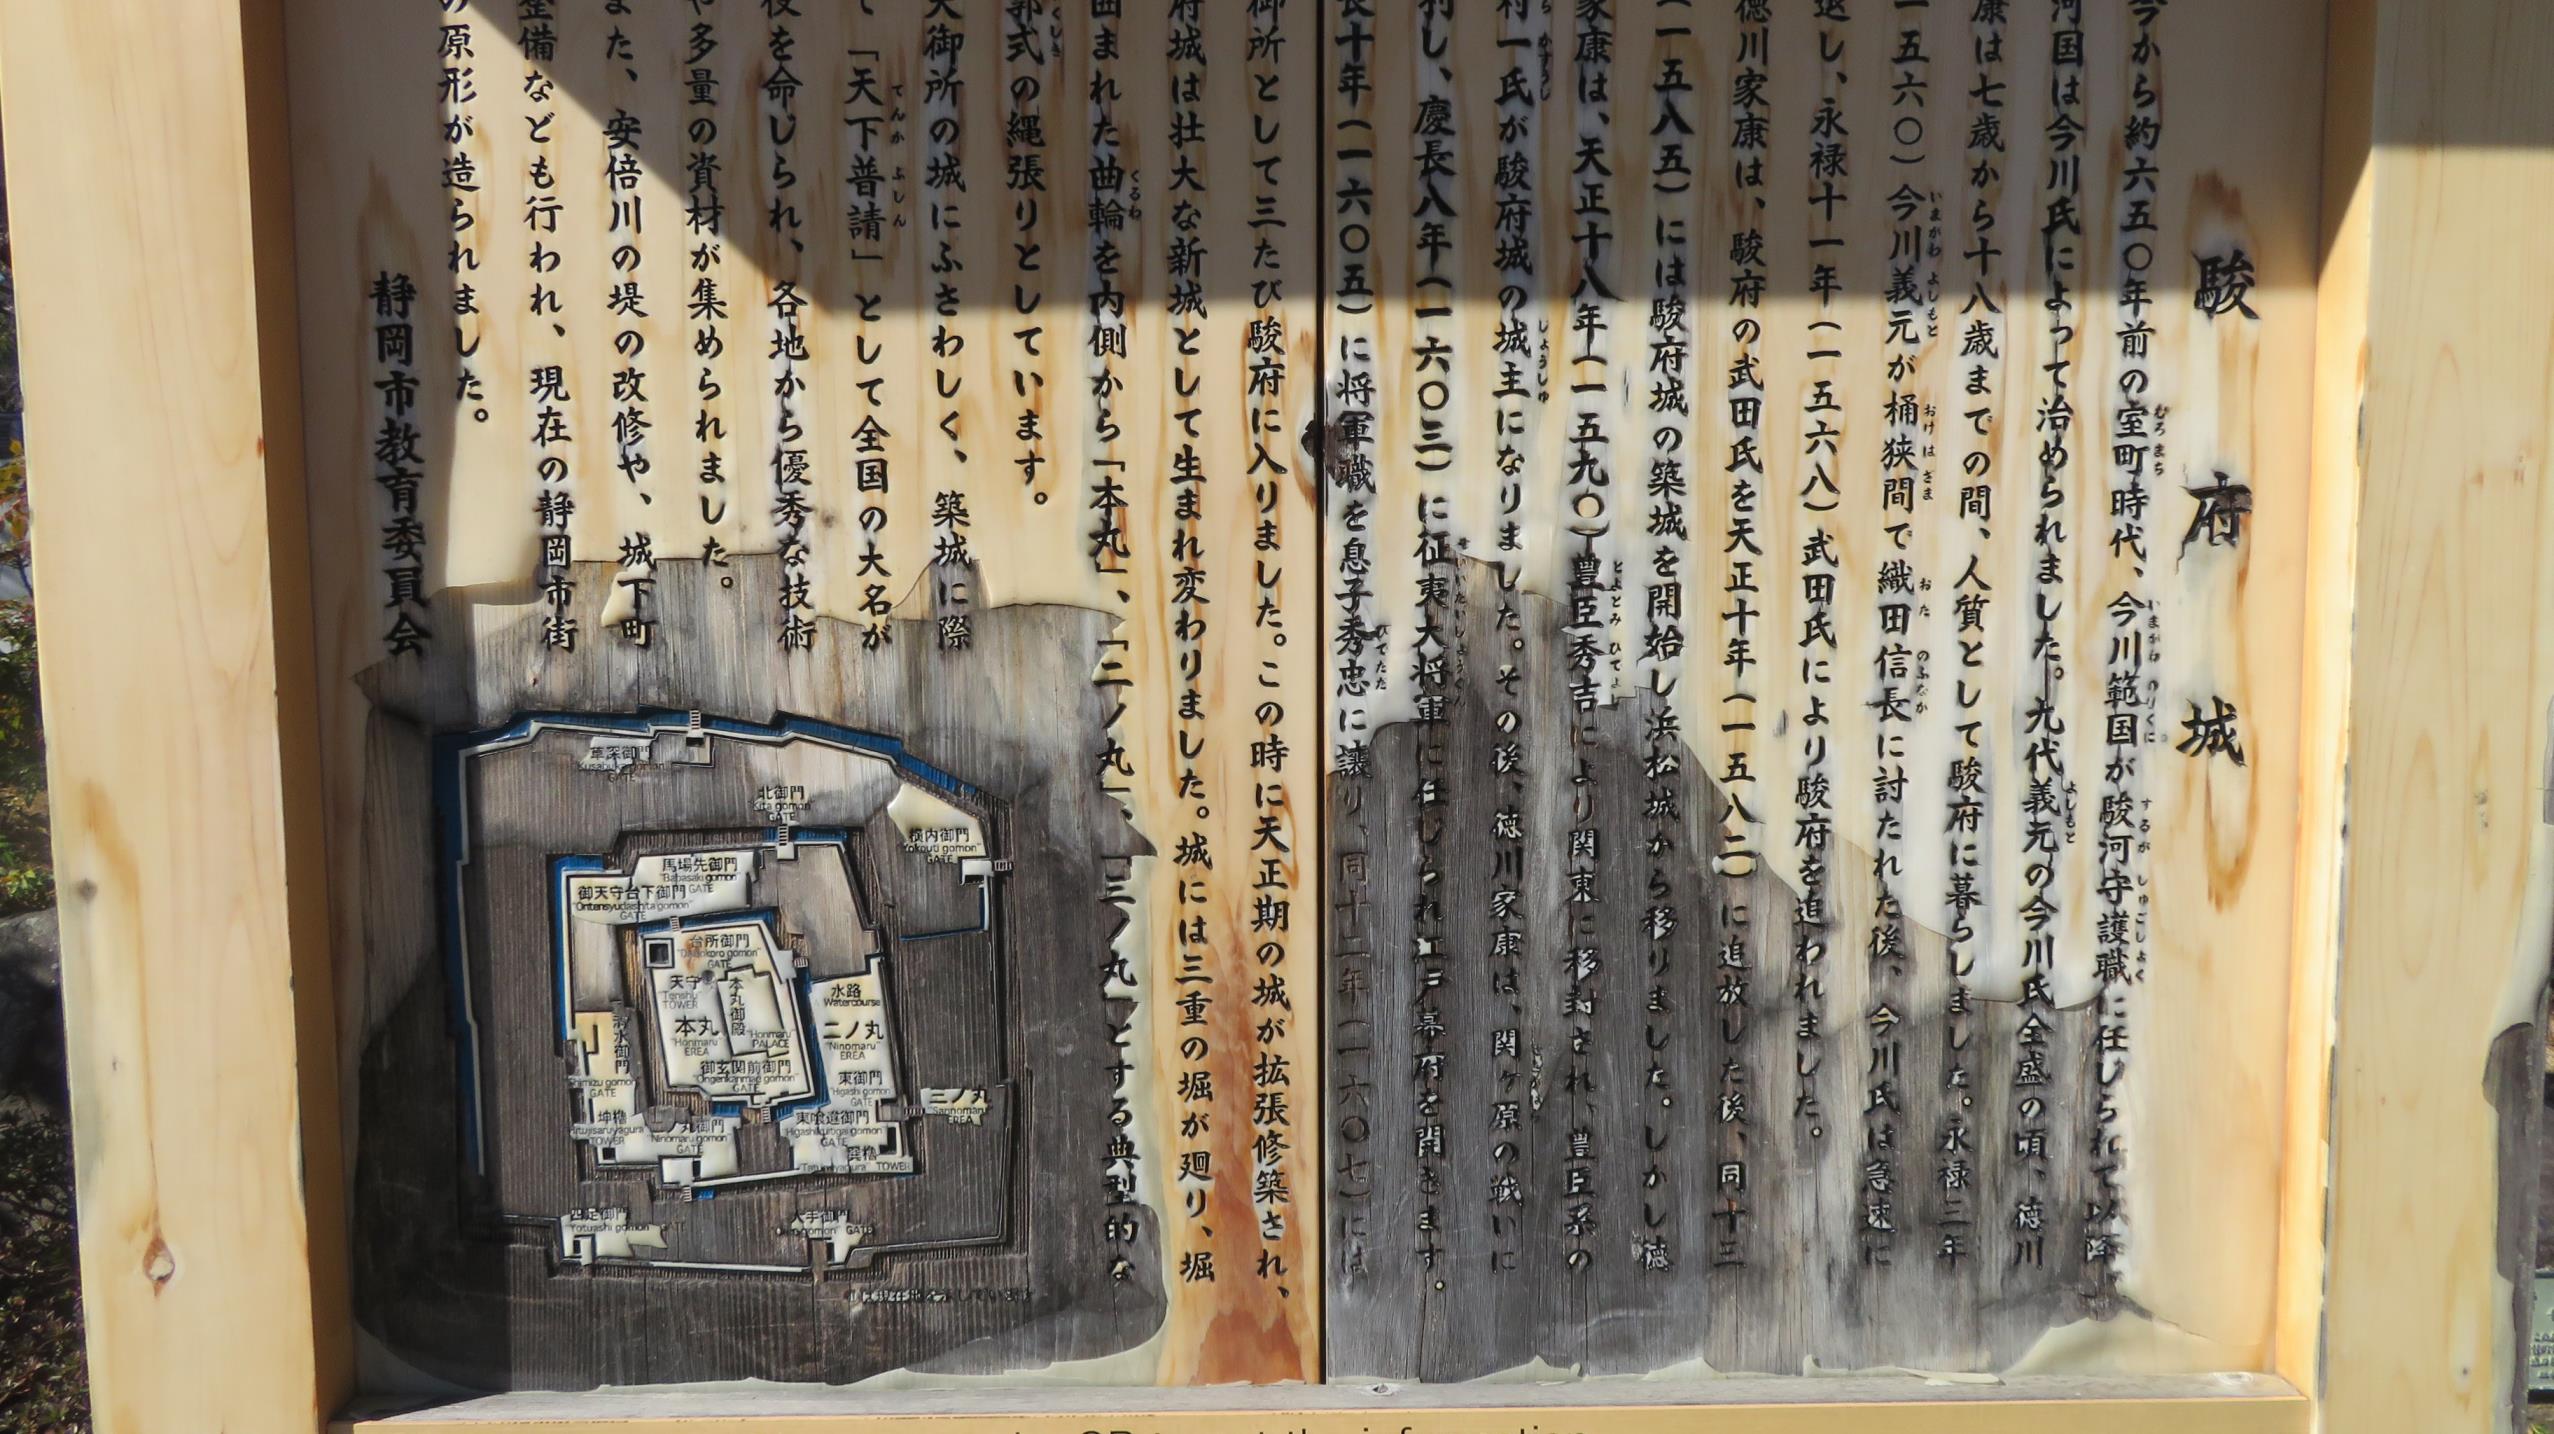 駿府城
今から約六五〇年前の室町時代、今川範国が駿河守護職に任じられて以降、
河国は今川氏によって治められました。九代義元の今川氏全盛の頃、徳川
康は七歳から十八歳までの間、人質として駿府に暮らしました。永禄三年
一五六〇）今川義元が桶狭間で織田信長に討たれた後、今川氏は急速に
退し、永禄十一年（一五六八）武田氏により駿府を追われました。
徳川家康は、駿府の武田氏を天正十年（一五八二）に追放した後、同十三
（一五八五）には駿府城の築城を開始し浜松城から移りました。しかし徳
家康は、天正十八年（一五九〇）豊臣秀吉により関東に移封され、豊臣系の
村一氏が駿府城の城主になりました。その後、徳川家康は、関ヶ原の戦いに
利し、慶長八年（一六〇三）に征夷大将軍に任じられ江戸幕府を開きます。
長十年（一六〇五）に将軍職を息子秀忠に譲り、同十二年（一六〇七）には
御所として三たび駿府に入りました。この時に天正期の城が拡張修築され、
府城は壮大な新城として生まれ変わりました。城には三重の堀が廻り、堀
囲まれた曲輪を内側から「本丸」、「二ノ丸」、「三ノ丸」とする典型的な
郭式の縄張りとしています。
大御所の城にふさわしく、築城に際
て「天下普請」として全国の大名が
役を命じられ、各地から優秀な技術
や多量の資材が集められました。
また、安倍川の堤の改修や、城下町
整備なども行われ、現在の静岡市街
の原形が造られました。
静岡市教育委員会
草深御門
"Kusabuka gomon"
GATE
北御門
"Kita gomon"
GATE
横内御門
"Yokouti gomon"
GATE
馬場先御門
"Babasaki gomon"
GATE
御天守台下御門
"Ontensyudaishita gomon"
GATE
台所御門
"Daidokoro gomon"
GATE
天守
"Tenshu"
TOWER
本丸御殿
"Honmaru"
PALACE
本丸
"Honmaru"
EREA
御玄関前御門
"Ongenkanmae gomon"
GATE
水路
Watercourse
二ノ丸
"Ninomaru"
EREA
東御門
"Higashi gomon"
GATE
清水御門
"Shimizu gomon"
GATE
三ノ丸
"Sannomaru"
EREA
坤櫓
TOWER
二ノ丸御門
"Ninomaru gomon"
GATE
東喰違御門
GATE
巽櫓
"Tatumiyagura" TOWER
四足御門
"Yotuashi gomon" GATE
大手御門
GATE